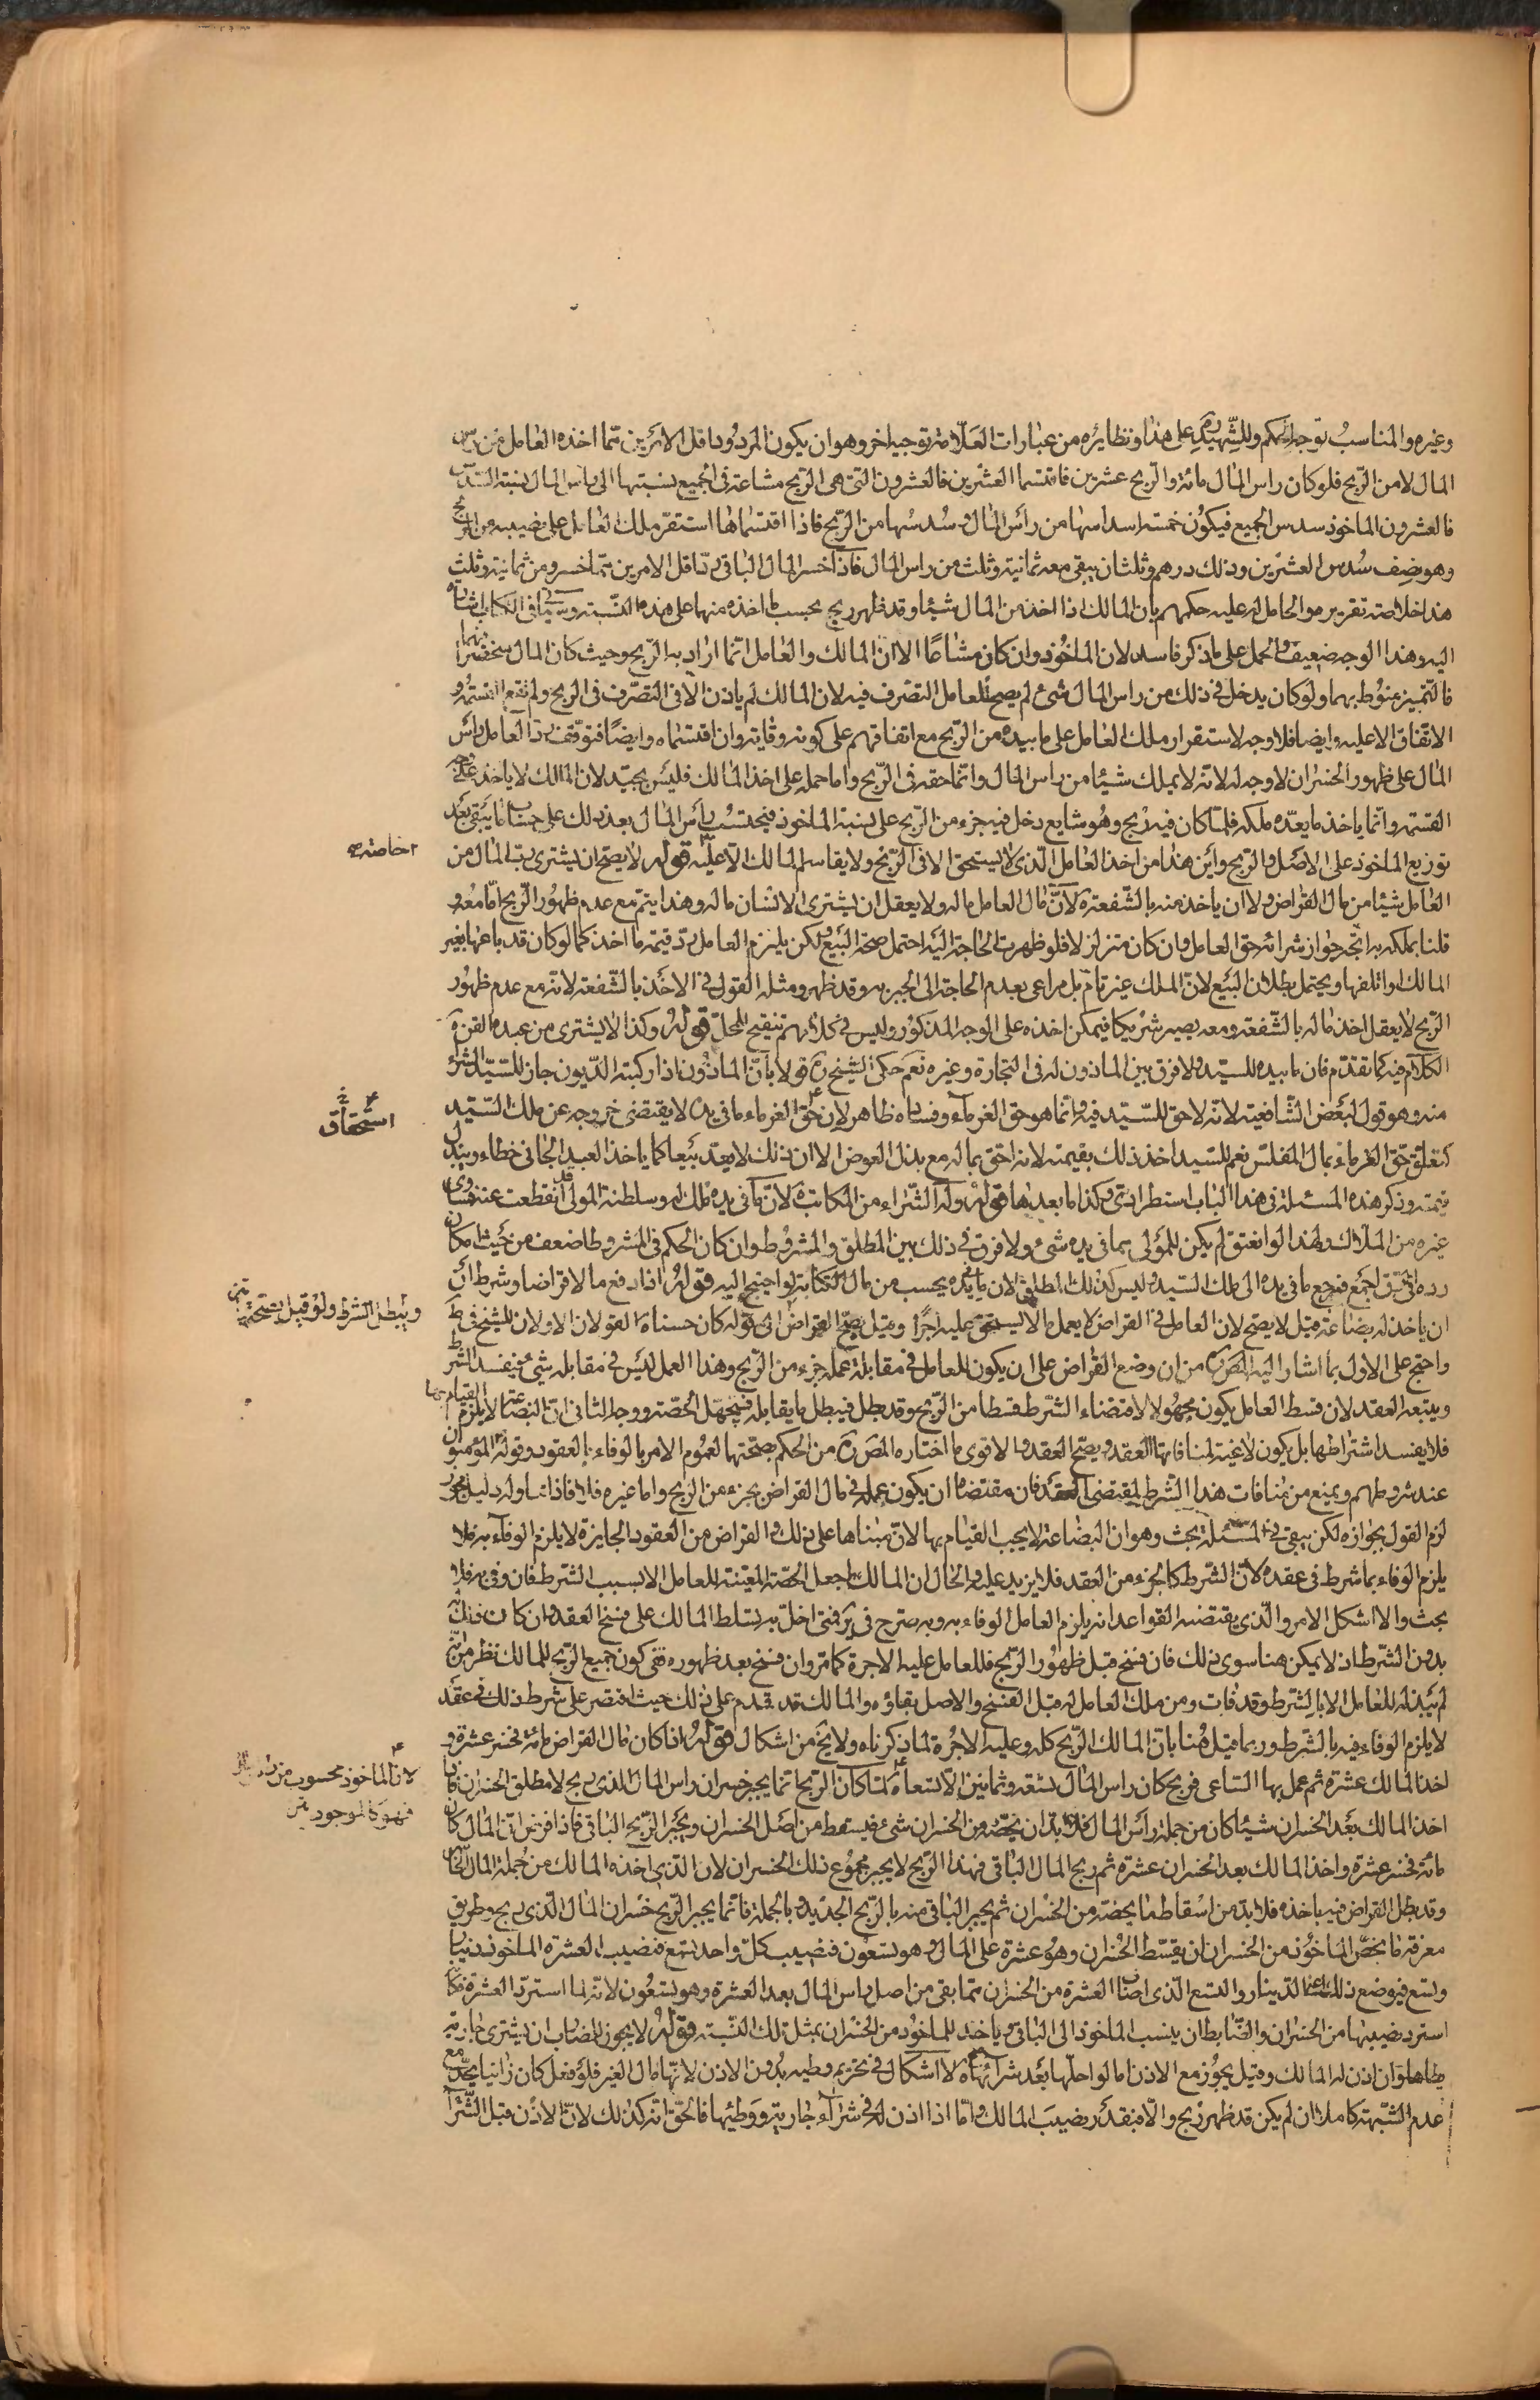 وغيره والمناسب توجيه الحكم وللشهيد ره على هذا ونظايره من عبارات العلامة توجيه اخر وهو ان يكون المردود اقل الامرين مما اخذه العامل من راس
المال لا من الربح فلو كان راس المال مائة والربح عشرين فاقتسما العشرين فالعشرون التي هي الربح مشاعة في الجميع نسبتها الى راس المال نسبة السدس
فالعشرون الماخوذ سدس الجميع فيكون خمسة اسداسها من راس المال وسدسها من الربح فاذا اقتسماها استقر ملك العامل على نصيبه من الربح
وهو نصف سدس العشرين وذلك درهم وثلثان يبقى معه ثمانية وثلث من راس المال فاذا خسر المال الباقي رد اقل الامرين مما خسر ومن ثمانية وثلث
هذا خلاصة تقريره والحامل له عليه حكمهم بان المالك اذا اخذ من المال شيئا وقد ظهر ربح بحسب ما اخذه منها على هذه النسبة وسياتي في الكتاب اشارة
اليه وهذا الوجه ضعيف والحمل على ما ذكر فاسد لان الماخوذ وان كان مشاعا الا ان المالك والعامل انما ارادا به الربح وحيث كان المال منحصرا فيهما
فالتمييز منوط بهما ولو كان يدخل في ذلك من راس المال شئ لم يصح للعامل التصرف فيه لان المالك لم ياذن الا في التصرف في الربح ولم تقع القسمة و
الاتفاق الا عليه وايضا فلا وجه لاستقرار ملك العامل على ما بيده من الربح مع اتفاقهم على كونه وقاية وان اقتسماه وايضا فتوقف رد العامل راس
المال على ظهور الخسران لا وجه له لانه لا يملك شيئا من راس المال وانما حقه في الربح واما حمله على اخذ المالك فليس بجيد لان المالك لا ياخذ على وجه
القسمة وانما ياخذ ما يعده ملكه فلما كان فيه ربح وهو شايع دخل فيه جزء من الربح على نسبة الماخوذ فيحتسب راس المال بعد ذلك على حساب ما يبقى بعد
توزيع الماخوذ على الاصل والربح واين هذا من اخذ العامل الذي لا يستحق الا في الربح ولا يقاسم المالك الا عليه قوله لا يصح ان يشترى رب المال من
العامل شيئا من مال القراض ولا ان ياخذ منه بالشفعة لان مال العامل ماله ولا يعقل ان يشترى الانسان ماله وهذا يتم مع عدم ظهور الربح اما معه و
قلنا بملكه به اتجه جواز شرائه حق العامل وان كان متزلزلا فلو ظهرت الحاجة اليه احتمل صحة البيع ولكن يلزم العامل رد قيمة ما اخذ كما لو كان قد باعها بغير
المالك او اتلفها ويحتمل بطلان البيع لان الملك غير تام بل مراعى بعدم الحاجة الى الجبر به وقد ظهر ومثله القول في الاخذ بالشفعة لانه مع عدم ظهور
الربح لا يعقل اخذ ماله بالشفعة ومعه يصير شريكا فيمكن اخذه على الوجه المذكور وليس في كلامهم تنقيح للمحل قوله وكذا لا يشترى من عبده القن
الكلام فيه كما تقدم فان ما بيده للسيد ولا فرق بين الماذون له في التجارة وغيره نعم حكى الشيخ ره قولا بان الماذون اذا ركبته الديون جاز للسيد الشراء
منه وهو قول لبعض الشافعية لانه لا حق للسيد فيه وانما هو حق الغرماء وفساده ظاهر لان حق الغرماء ما في يده لا يقتضى خروجه عن ملك السيد
كتعلق حق الغرماء بمال المفلس نعم للسيد اخذ ذلك بقيمته لانه احق بماله مع بذل العوض الا ان ذلك لا يعد بيعا كما ياخذ العبد الجاني خطاء ويبذل
قيمته وذكر هذه المسئلة في هذا الباب استطرادي وكذا ما بعدها قوله وله الشراء من المكاتب لان ما في يده ملك له وسلطنة المولى قد انقطعت عنه فساوى
غيره من الملاك ولهذا لو انعتق لم يكن للمولى بما في يده شئ ولا فرق في ذلك بين المطلق والمشروط وان كان الحكم في المشروط اضعف من حيث امكان
رده في الرق اجمع فيرجع ما في يده الى ملك السيد وليس كذلك المطلق لان ما بيده يحسب من مال الكتابة لو احتيج اليه قوله اذا دفع مالا قراضا وشرط ان
ان ياخذ له بضاعة قيل لا يصح لان العامل في القراض لا يعمل ما لا يستحق عليه اجرا وقيل يصح القراض الى قوله كان حسنا القولان الاولان للشيخ في ط
واحتج على الاول بما اشار اليه المص ره من ان وضع القراض على ان يكون للعامل في مقابلة عمله جزء من الربح وهذا العمل ليس في مقابله شئ فيفسد الشرط
ويتبعه العقد لان قسط العامل يكون مجهولا لاقتضاء الشرط قسطا من الربح وقد بطل فيبطل ما يقابله فتجهل الحصة ووجه الثاني ان البضاعة لا يلزم القيام بها
فلا يفسد اشتراطها بل يكون لاغية لمنافاتها العقد ويصح العقد والاقوى ما اختاره المص ره من الحكم بصحتها لعموم الامر بالوفاء بالعقود وقوله المؤمنون
عند شروطهم ويمنع من منافات هذا الشرط لمقتضى العقد فان مقتضاه ان يكون عمله في مال القراض بجزء من الربح واما غيره فلا فاذا تناوله دليل مجوز
لزم القول بجوازه لكن يبقى في المسئلة بحث وهو ان البضاعة لا يجب القيام بها لان مبناها على ذلك والقراض من العقود الجايزة لا يلزم الوفاء به فلا
يلزم الوفاء بما شرط في عقده لان الشرط كالجزء من العقد فلا يزيد عليه والحال ان المالك ما جعل الحصة المعينة للعامل الا بسبب الشرط فان وفى به فلا
بحث والا اشكل الامر والذي يقتضيه القواعد انه يلزم العامل الوفاء به وبه صرح في ير فمتى اخل به تسلط المالك على فسخ العقد وان كان ذلك
بدون الشرط اذ لا يمكن هنا سوى ذلك فان فسخ قبل ظهور الربح فللعامل عليه الاجرة كما مر وان فسخ بعد ظهوره ففي كون جميع الربح للمالك نظر من انه
لم يبذله للعامل الا بالشرط وقد فات ومن ملك العامل له قبل الفسخ والاصل بقاؤه والمالك قد قدم على ذلك حيث اقتصر على شرط ذلك في عقد
لا يلزم الوفاء فيه بالشرط وربما قيل هنا بان للمالك الربح كله وعليه الاجرة لما ذكرناه ولا يخ من اشكال قوله اذا كان مال القراض مائة فخسر عشرة و
اخذ المالك عشرة ثم عمل بها الساعى فربح كان راس المال تسعة وثمانين الا تسعا لما كان الربح انما يجبر خسران راس المال الذي ربح لا مطلق الخسران فاذا
اخذ المالك بعد الخسران شيئا كان من جملة راس المال فلا بد ان يخصه من الخسران شئ فيسقط من اصل الخسران ويجبر الربح الباقي فاذا فرض ان المال كان
مائة فخسر عشرة واخذ المالك بعد الخسران عشرة ثم ربح المال الباقي فهذا الربح لا يجبر مجموع ذلك الخسران لان الذي اخذه المالك من جملة المال الخاسر
وقد بطل القراض فيه باخذه فلا بد من اسقاط ما يخصه من الخسران ثم يجبر الباقي منه بالربح الجديد وبالجملة فانما يجبر الربح خسران المال الذي ربح وطريق
معرفة ما يخص الماخوذ من الخسران ان يقسط الخسران وهو عشرة على المال وهو تسعون فنصيب كل واحد تسع فنصيب العشرة الماخوذ دينار
وتسع فيوضع ذلك اعنى الدينار والتسع الذي اصاب العشرة من الخسران مما بقى من اصل راس المال بعد العشرة وهو تسعون لانه لما استرد العشرة فكانه
استرد نصيبها من الخسران والضابط ان ينسب الماخوذ الى الباقي وياخذ للماخوذ من الخسران بمثل تلك النسبة قوله لا يجوز للمضارب ان يشترى جارية
يطاها وان اذن له المالك وقيل يجوز مع الاذن اما لو احلها بعد شرائها صح لا اشكال في تحريم وطيه بدون الاذن لانها مال الغير فلو فعل كان زانيا يحد مع
عدم الشبهة كاملا ان لم يكن قد ظهر ربح والا فبقدر نصيب المالك واما اذا اذن له في شراء جارية ووطيها فالحق انه كذلك لان الاذن قبل الشراء
خاصة صح
استحقاق
ويبطل الشرط ولو قيل بصحتهما
لان الماخوذ محسوب من راس المال
فهو كالموجود